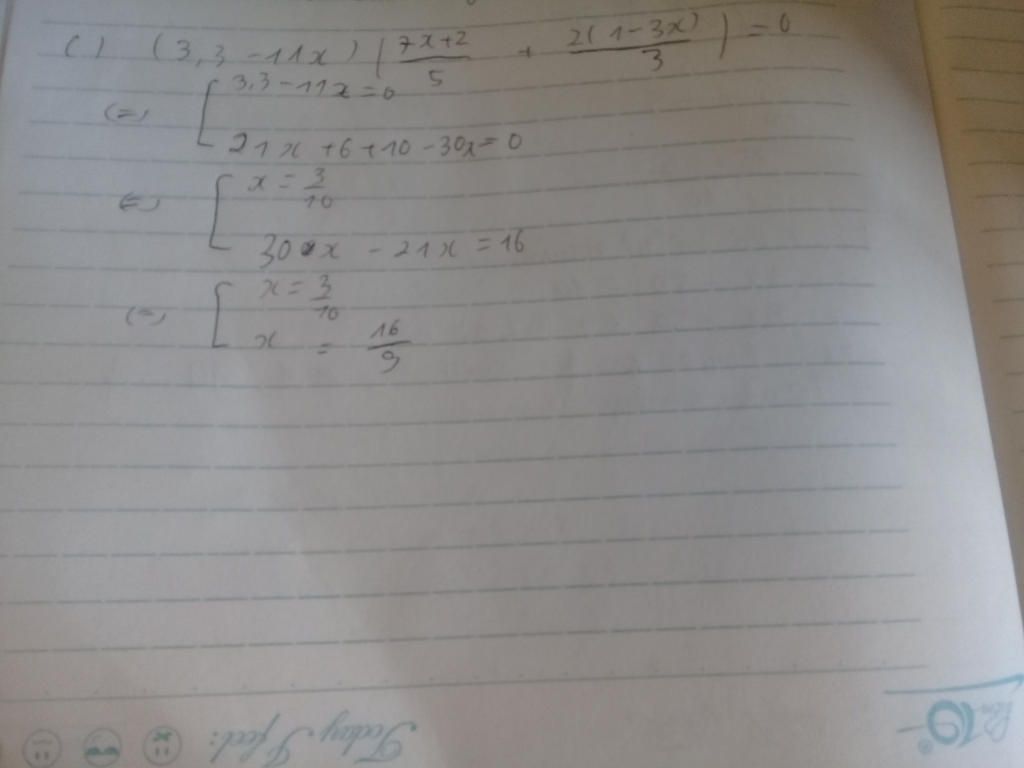 c) (3,3 - 11x) ( (7x+2)/5 + 2(1-3x)/3 ) = 0
(=) [ 3,3 - 11x = 0
21x + 6 + 10 - 30x = 0
(=) [ x = 3/10
30x - 21x = 16
(=) [ x = 3/10
x = 16/9
Today I feel: